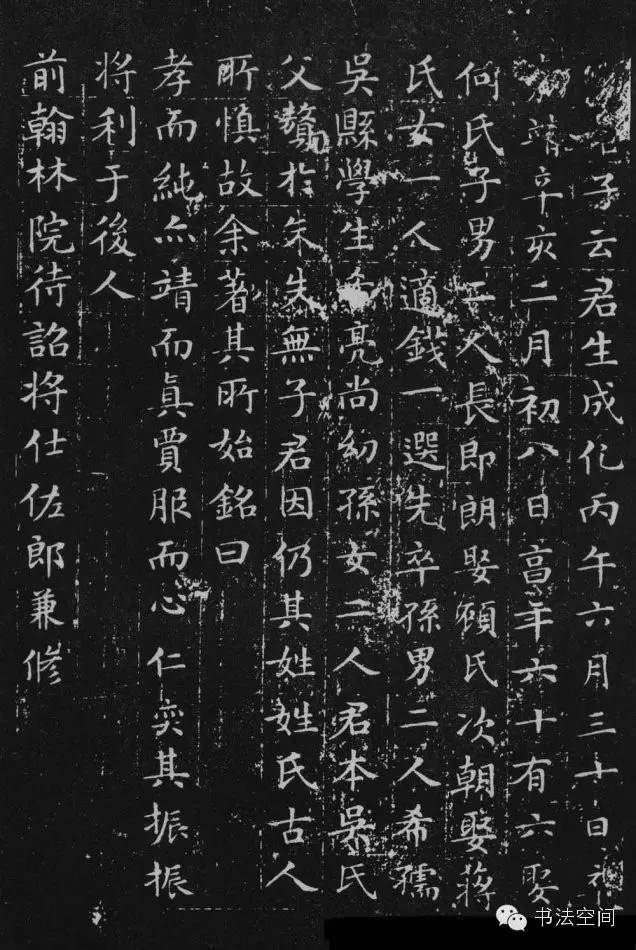 子云君生成化丙午六月三十日
靖辛亥二月初八日富年六十有六娶
何氏子男二人長即朗娶顧氏次朝娶蔣
氏女一人適錢一選先卒孫男二人希孺
吳縣學生亮尚幼孫女二人君本吳氏
父贅扵朱朱無子君因仍其姓姓氏古人
所慎故余著其所始銘曰
孝而純亦靖而真賈服而心仁奕其振振
将利于後人
前翰林院待詔将仕佐郎兼修
书法空间